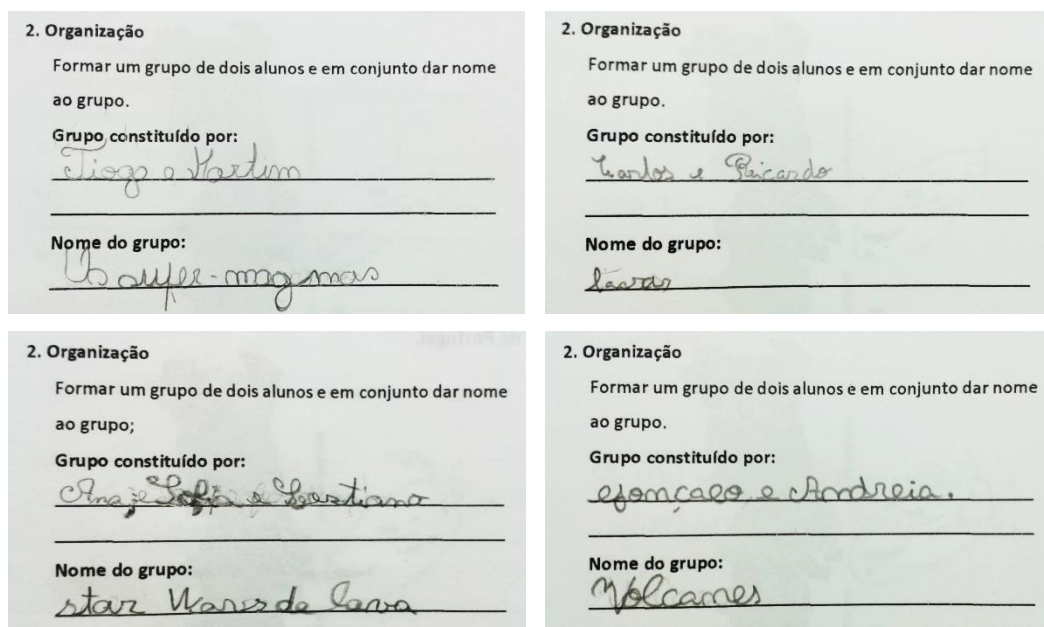 2. Organização
Formar um grupo de dois alunos e em conjunto dar nome
ao grupo.
Grupo constituído por:
Tiogo e Martim
Nome do grupo:
Os super-magmas
2. Organização
Formar um grupo de dois alunos e em conjunto dar nome
ao grupo.
Grupo constituído por:
Carlos e Ricardo
Nome do grupo:
lavas
2. Organização
Formar um grupo de dois alunos e em conjunto dar nome
ao grupo;
Grupo constituído por:
Ana, Sofia e
Nome do grupo:
star Wares da lava
2. Organização
Formar um grupo de dois alunos e em conjunto dar nome
ao grupo.
Grupo constituído por:
Gonçalo e Andreia.
Nome do grupo:
Volcames